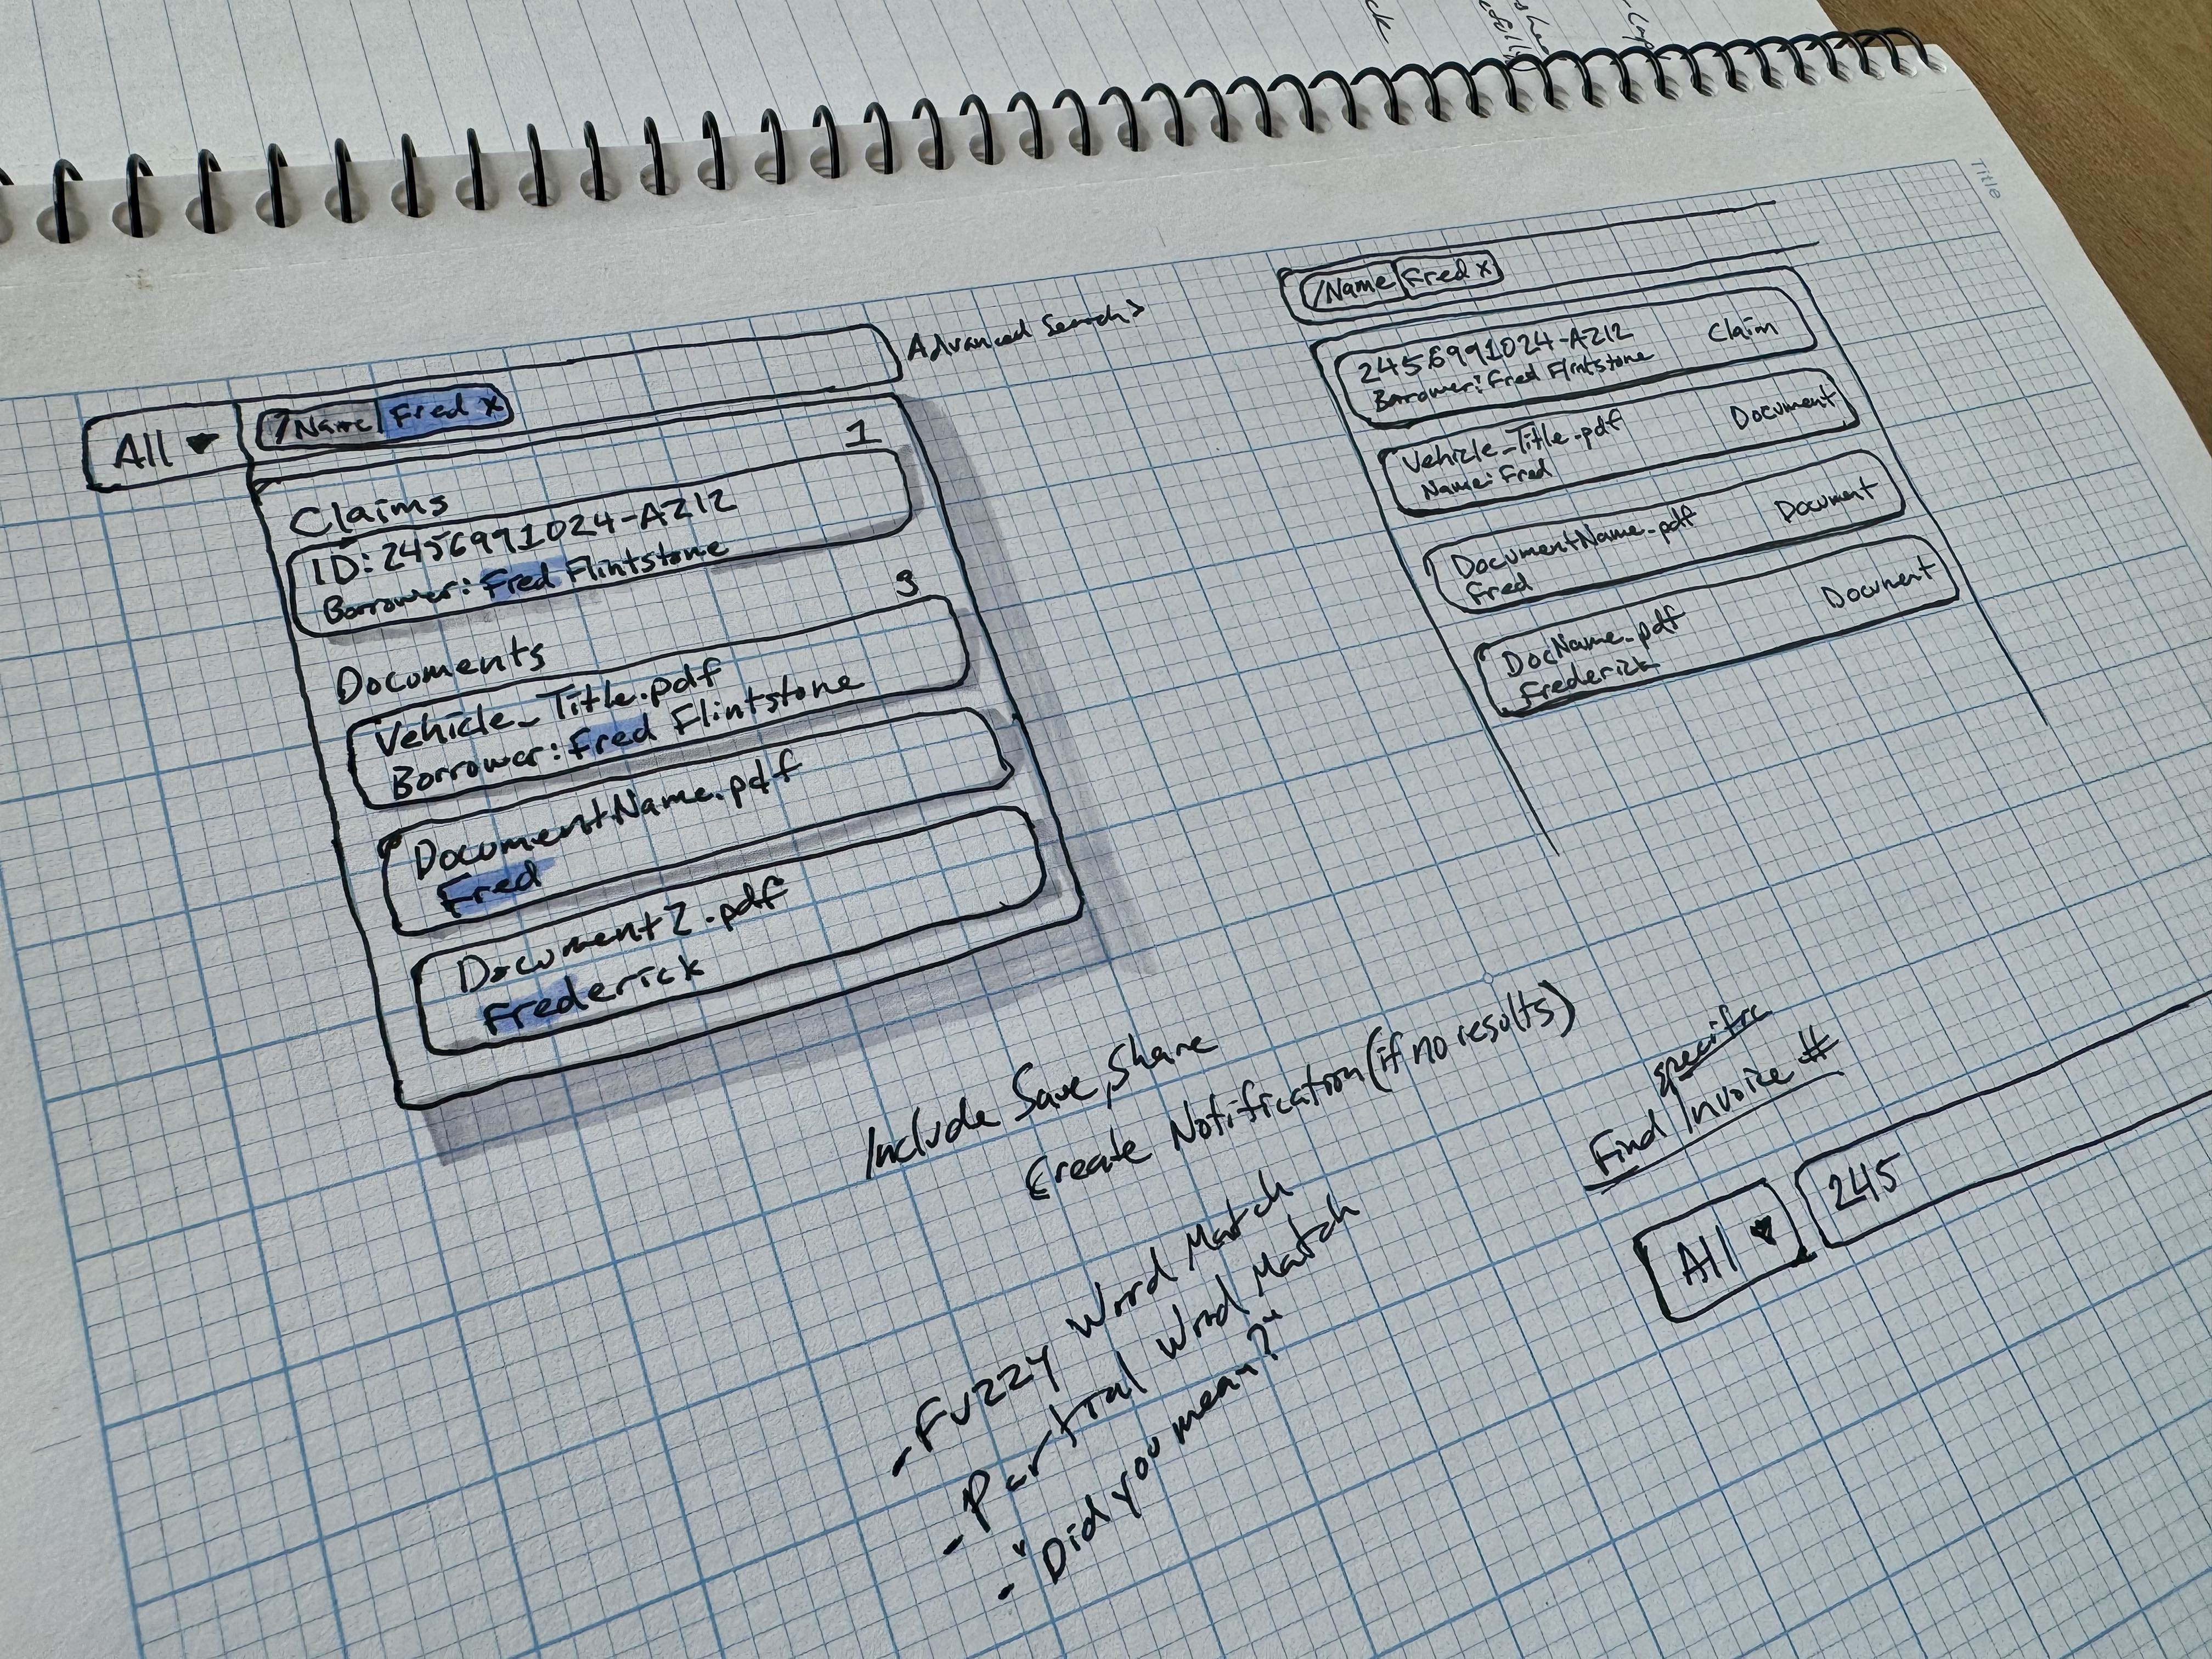 Title
All
/Name Fred x
Advanced Search >
Claims 1
ID: 2456991024-AZ12
Borrower: Fred Flintstone
Documents 3
Vehicle_Title.pdf
Borrower: Fred Flintstone
DocumentName.pdf
Fred
Document2.pdf
Frederick
/Name Fred x
2456991024-AZ12 Claim
Borrower: Fred Flintstone
Vehicle_Title.pdf Document
Name: Fred
DocumentName.pdf Document
Fred
DocName.pdf Document
Frederick
Include Save, Share
Create Notification (if no results)
- Fuzzy Word Match
- Partial Word Match
- "Did you mean?"
specific
Find Invoice #
All 245